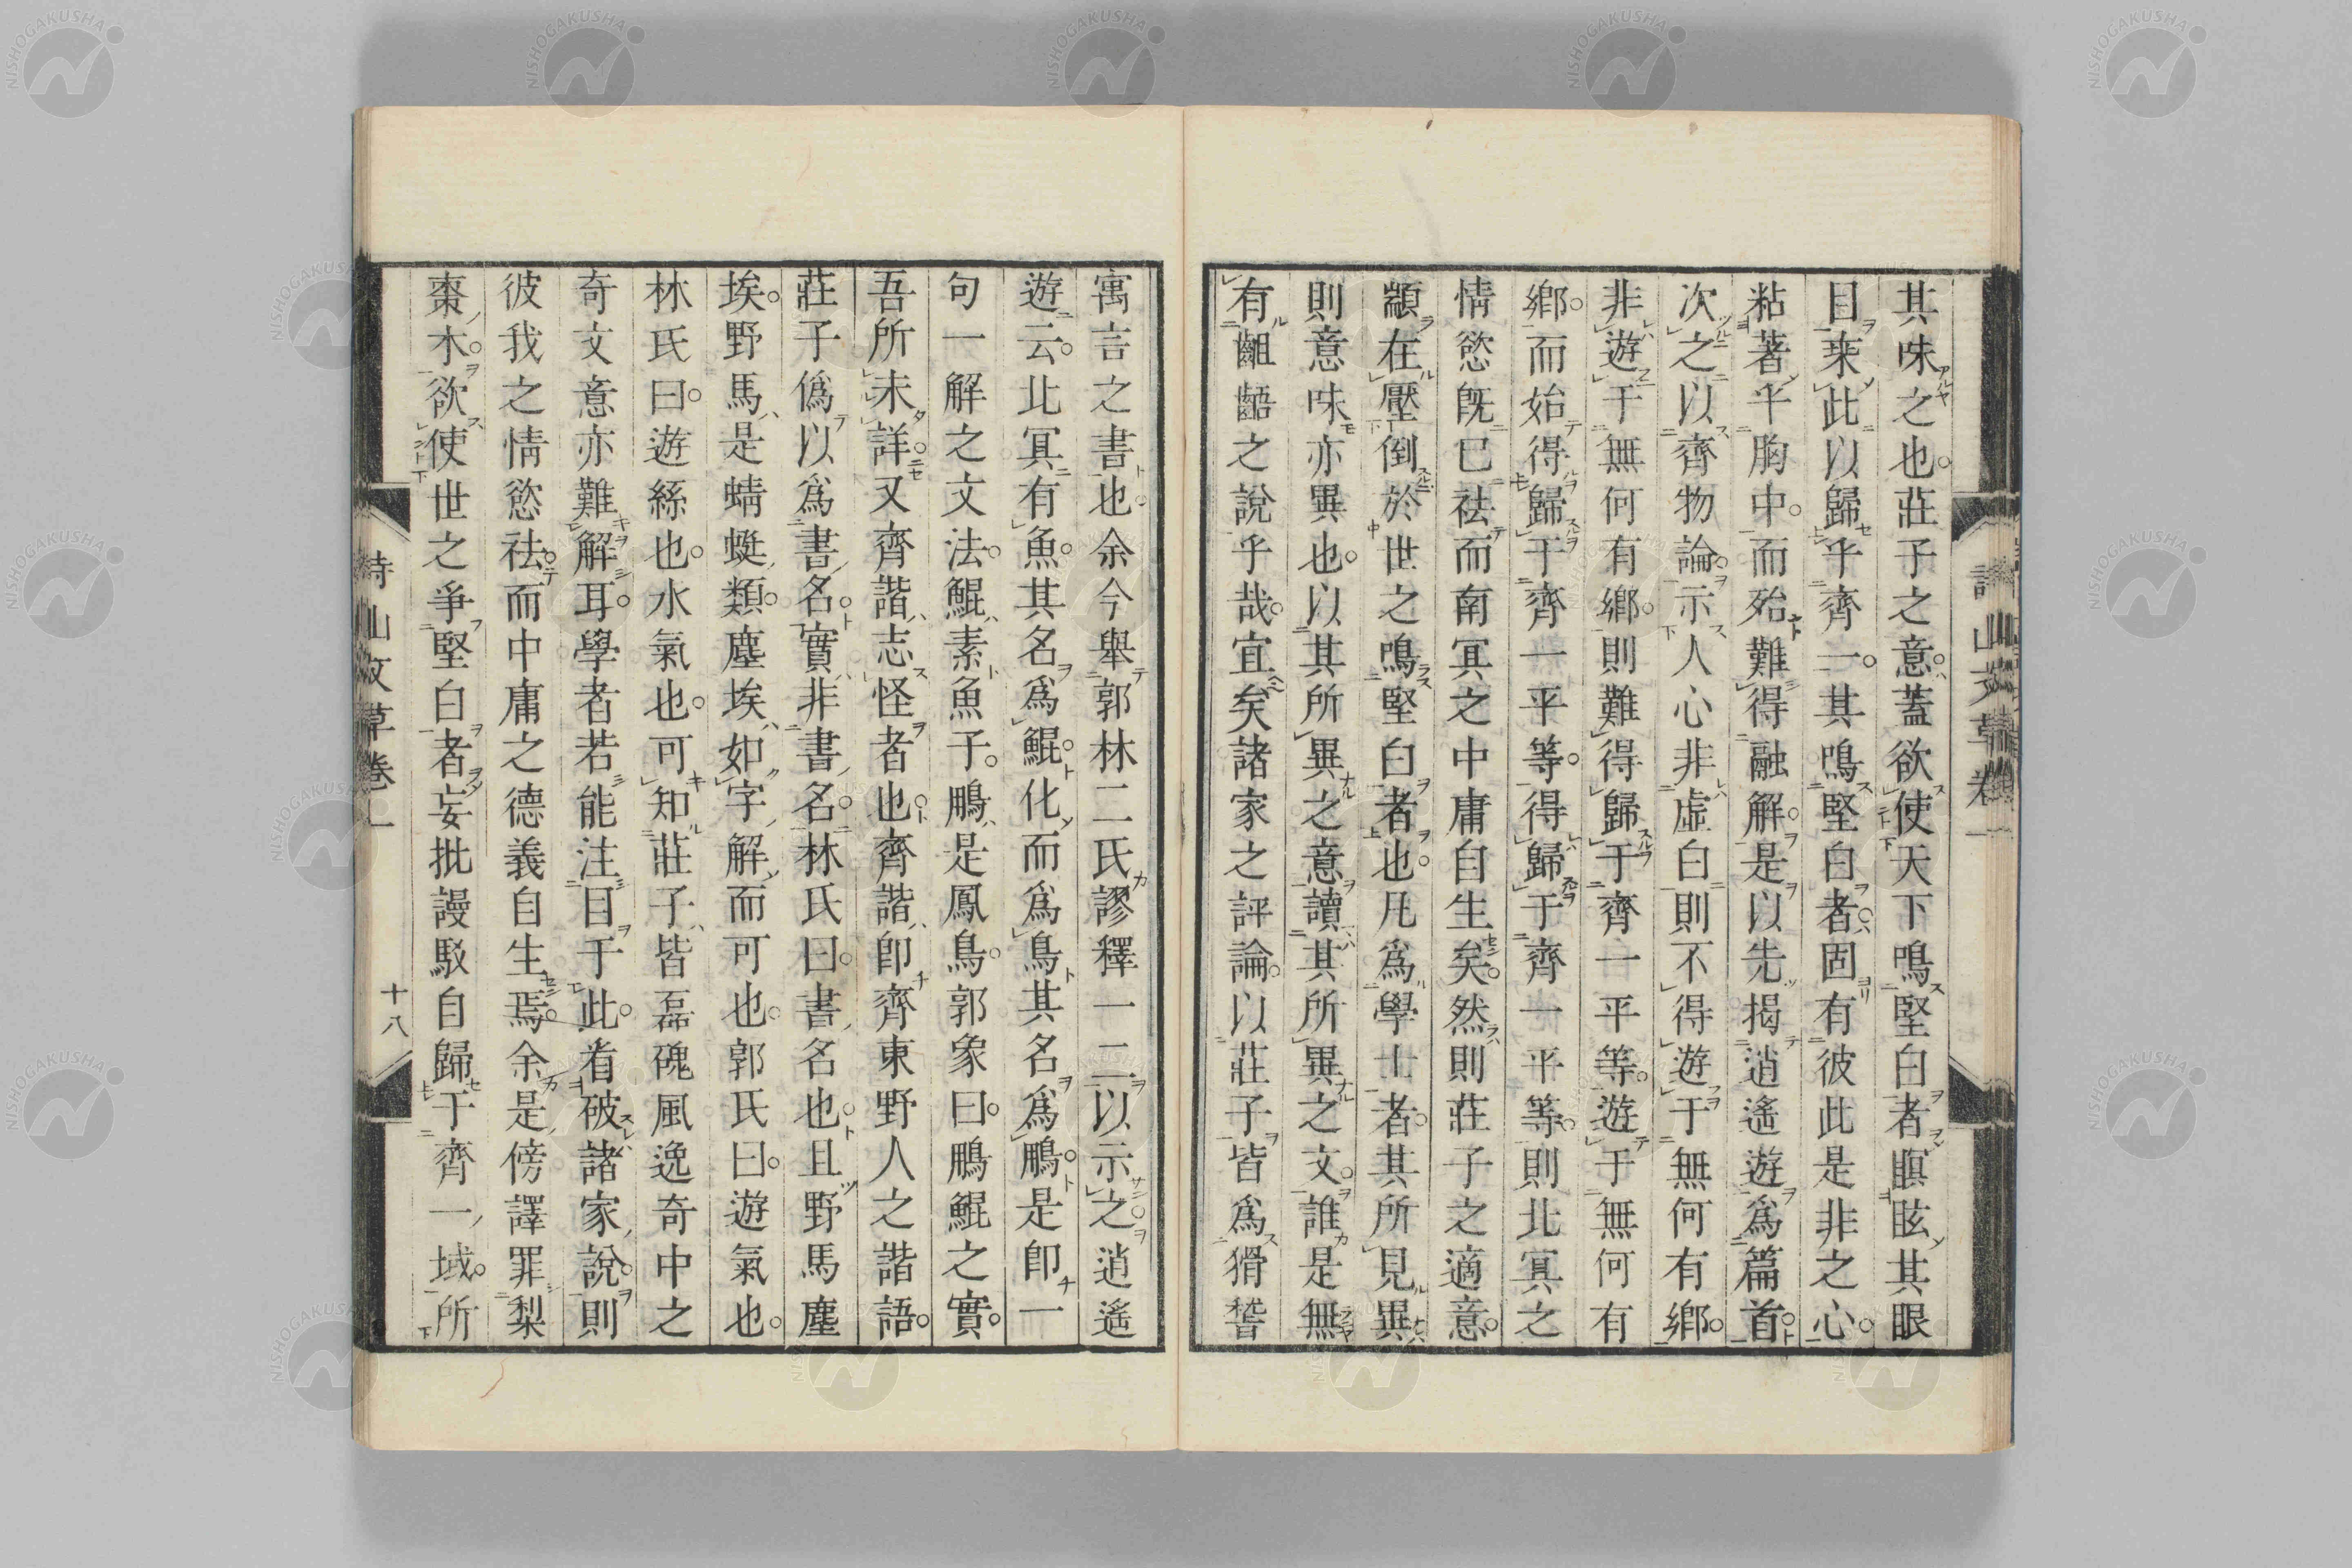 其味之也。莊子之意。蓋欲使天下鳴堅白者瞑眩其眼
目。來此以歸乎齊一。其鳴堅白者。固有彼此是非之心。
粘著乎胸中。而殆難得融解。是以先揭逍遙遊爲篇首。
次之以齊物論。示人心非虛白則不得遊于無何有鄉。
非遊于無何有鄉。則難得歸于齊一平等。遊于無何有
鄉。而始得歸于齊一平等。得歸于齊一平等。則北冥之
情慾既已祛而南冥之中庸自生矣。然則莊子之適意。
顓在壓倒於世之鳴堅白者也。凡爲學士者。其所見異
則意味亦異也。以其所異之意讀其所異之文。誰是無
有齟齬之說乎哉。宜矣諸家之評論。以莊子皆爲猾讐
寓言之書也。余今舉郭林二氏謬釋一二以示之。逍遙
遊云。北冥有魚。其名爲鯤。化而爲鳥其名爲鵬。是卽一
句一解之文法。鯤素魚子。鵬是鳳鳥。郭象曰。鵬鯤之實。
吾所未詳。又齊諧志怪者也。齊諧卽齊東野人之諧語。
莊子僞以爲書名。實非書名。林氏曰。書名也。且野馬塵
埃。野馬是蜻蜓類。塵埃如字解而可也。郭氏曰。遊氣也。
林氏曰。遊絲也。水氣也。可知莊子皆磊磈風逸奇中之
奇文意亦難解耳。學者若能注目于此。看破諸家說。則
彼我之情慾祛。而中庸之德義自生焉。余是傍譯罪梨
棗木。欲使世之爭堅白者妄批謾駁自歸于齊一域。所
詩山文草卷一
十八